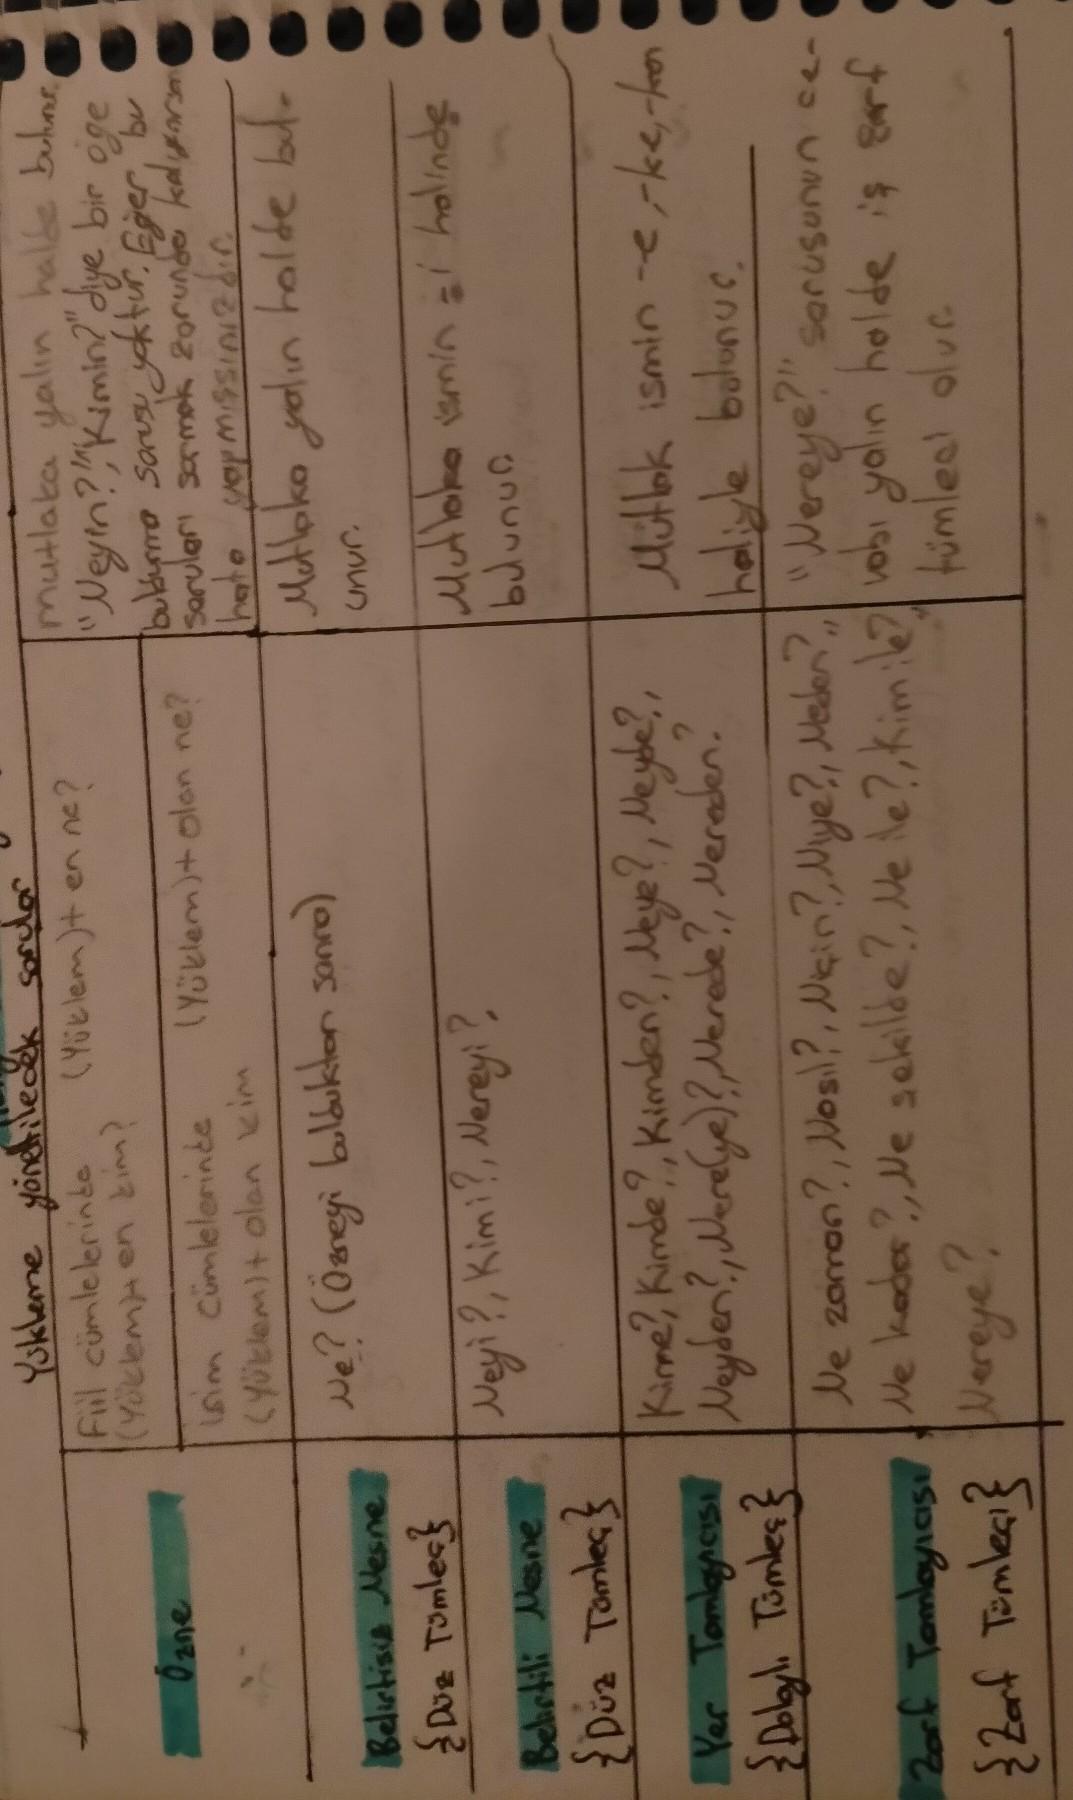 Yükleme yöneltilecek sorular
Özne
Fiil cümlelerinde
(Yüklem)+ en kim?
(Yüklem)+ en ne?
isim cümlelerinde
(Yüklem)+ olan kim
(Yüklem)+ olan ne?
mutlaka yalın halde bulunur.
"Neyin?", "Kimin?" diye bir öge
bulduran sorusu yoktur. Eğer bu
soruları sormak zorunda kalıyorsan
hata yapmışsınızdır.
Belirtisiz Nesne
{Düz Tümleç}
Ne? (Özneyi bulduktan sonra)
Mutlaka yalın halde bul-
unur.
Belirtili Nesne
{Düz Tümleç}
Neyi?, Kimi?, Nereyi?,
Mutlaka ismin -i halinde
bulunur.
Yer Tamlayıcısı
{Dolaylı Tümleç}
Kime?, Kimde?, Kimden?, Neye?, Neyde?,
Neyden?, Nere(ye)?, Nerede?, Nereden?
Mutlak ismin -e,
haliyle bulunur.
Zarf Tamlayıcısı
{Zarf Tümleçi}
Ne zaman?, Nasıl?, Niçin?, Niye?, Neden?,
Ne kadar?, Ne şekilde?, Ne ile?, Kim ile?
Nereye?,
"Nereye?" sorusunun ce-
vabı yalın halde is zarf
tümleci olur.